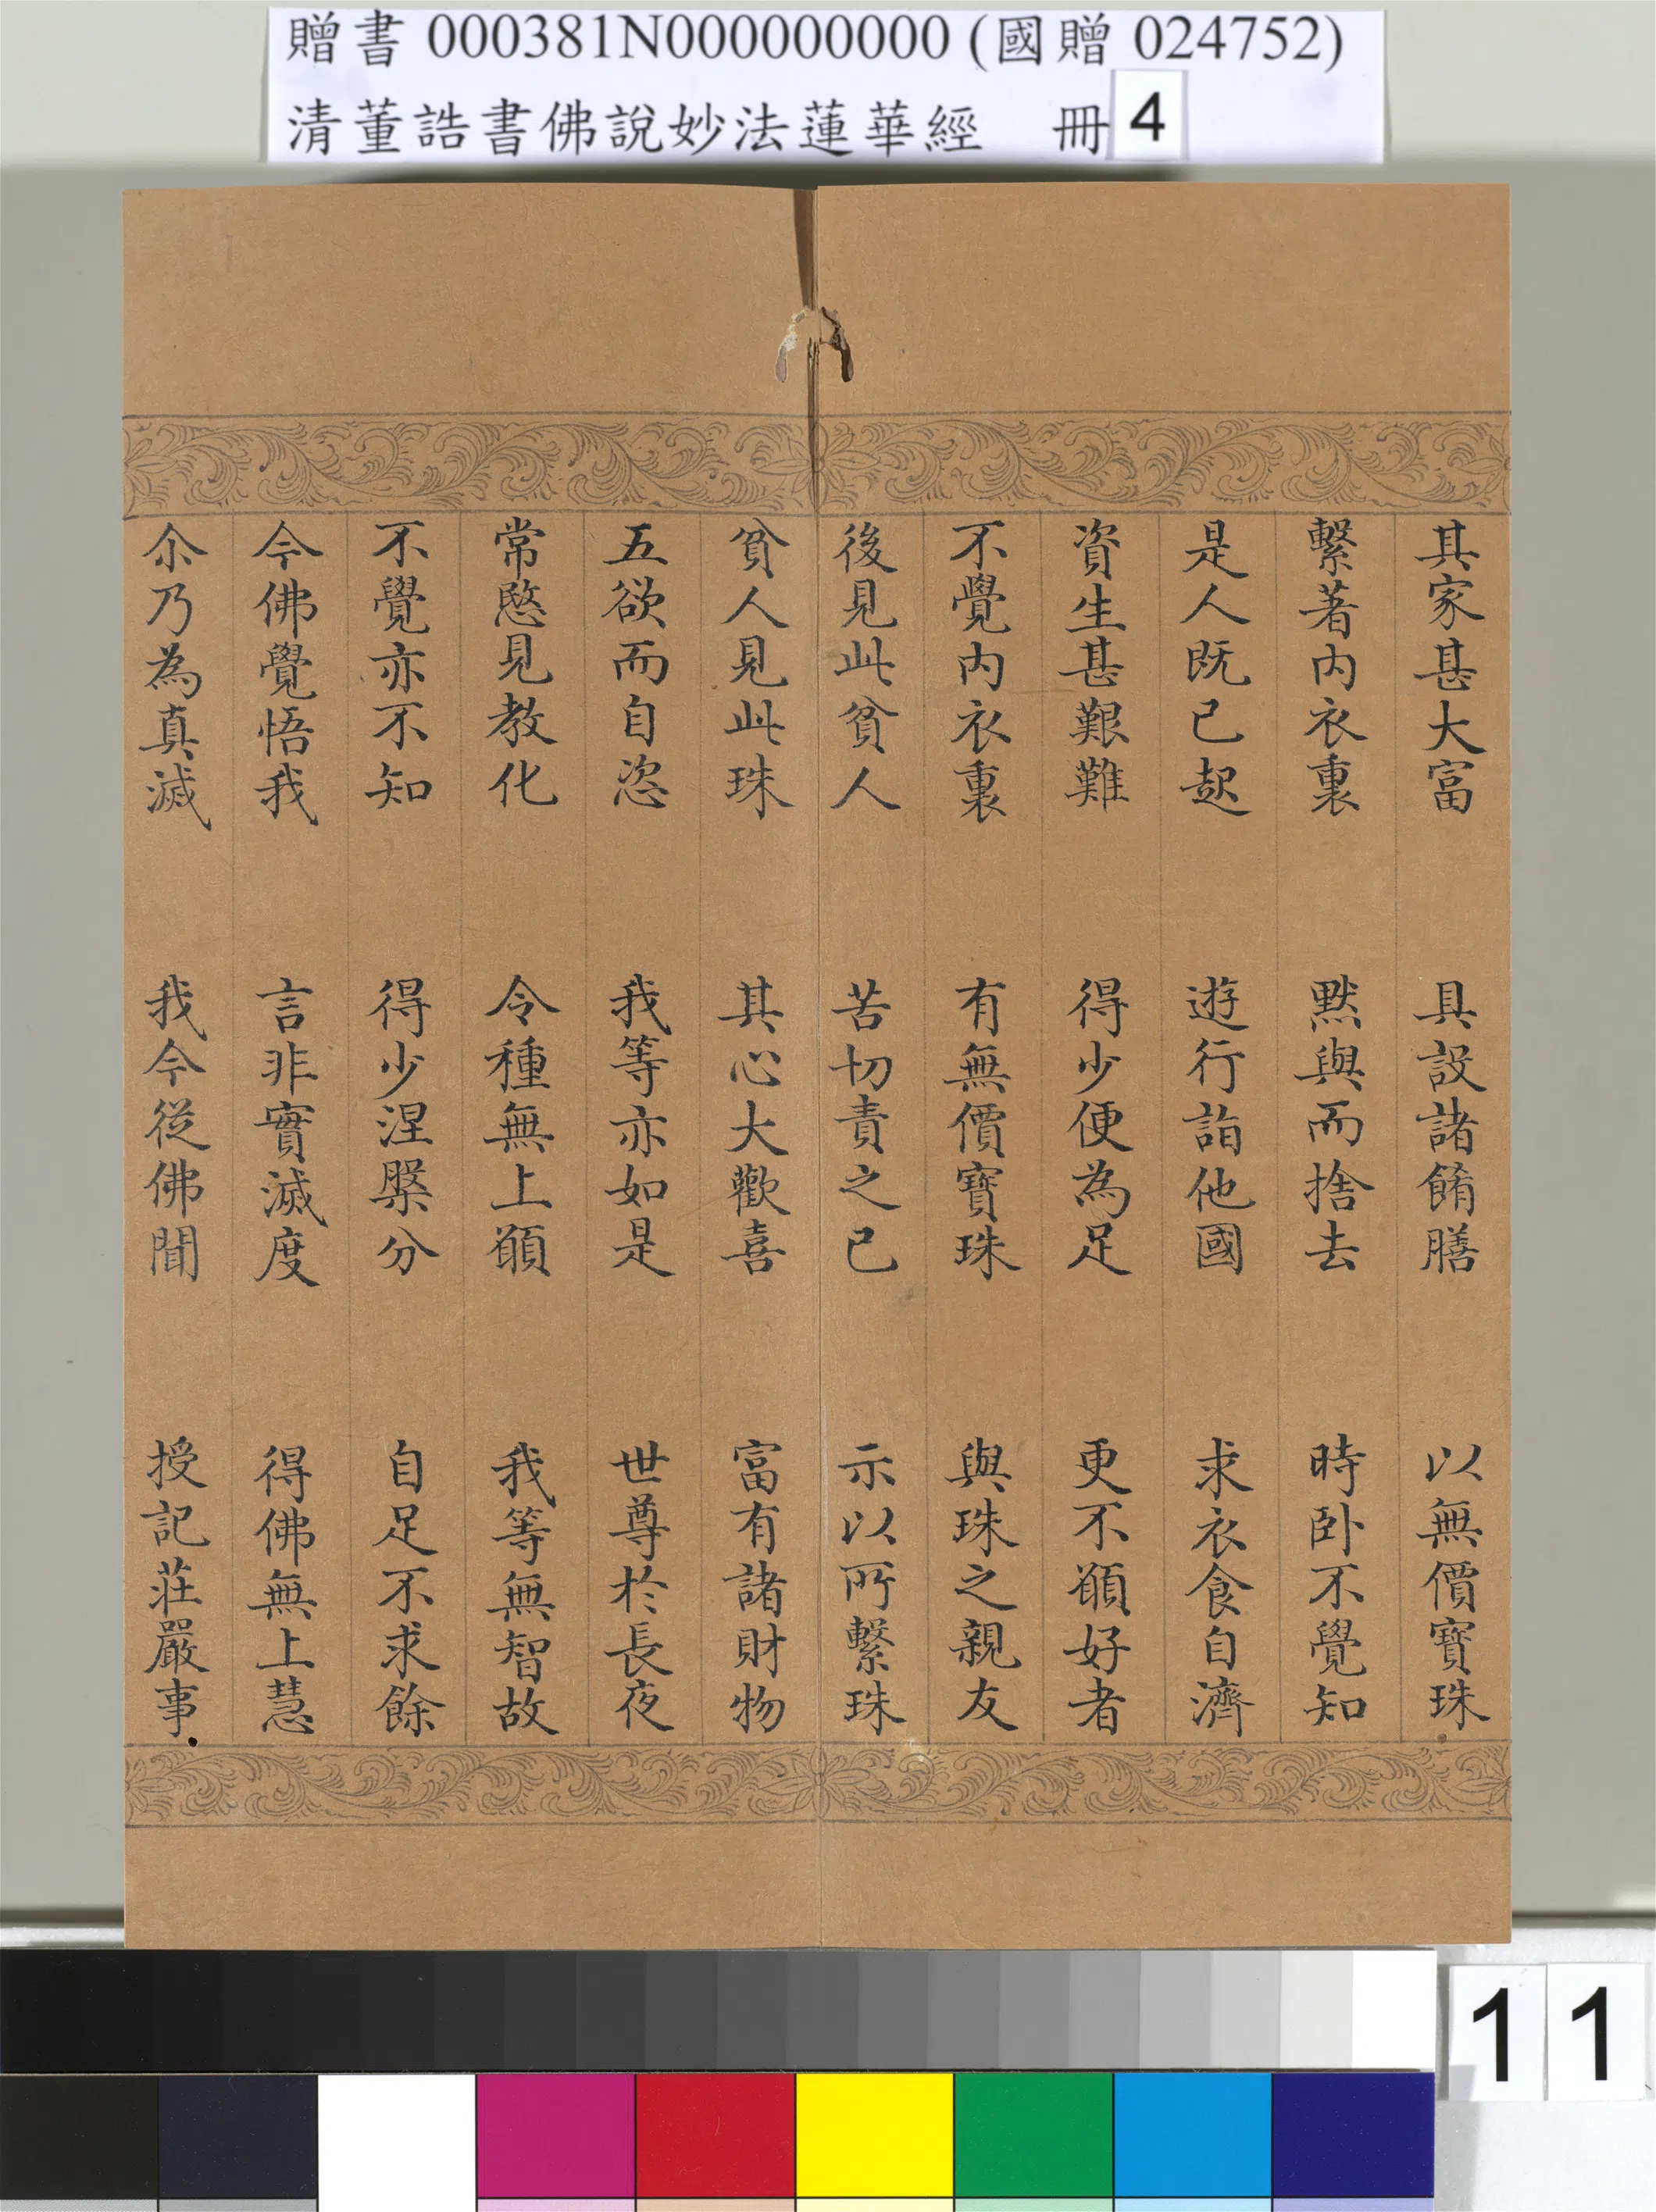 贈書 000381N000000000 (國贈 024752)
清董誥書佛說妙法蓮華經 冊 4
其家甚大富 具設諸餚膳 以無價寶珠
繫著内衣裏 默與而捨去 時卧不覺知
是人既已起 遊行詣他國 求衣食自濟
資生甚艱難 得少便為足 更不願好者
不覺内衣裏 有無價寶珠 與珠之親友
後見此貧人 苦切責之已 示以所繫珠
貧人見此珠 其心大歡喜 富有諸財物
五欲而自恣 我等亦如是 世尊於長夜
常愍見教化 令種無上願 我等無智故
不覺亦不知 得少涅槃分 自足不求餘
今佛覺悟我 言非實滅度 得佛無上慧
尒乃為真滅 我今從佛聞 授記莊嚴事
11